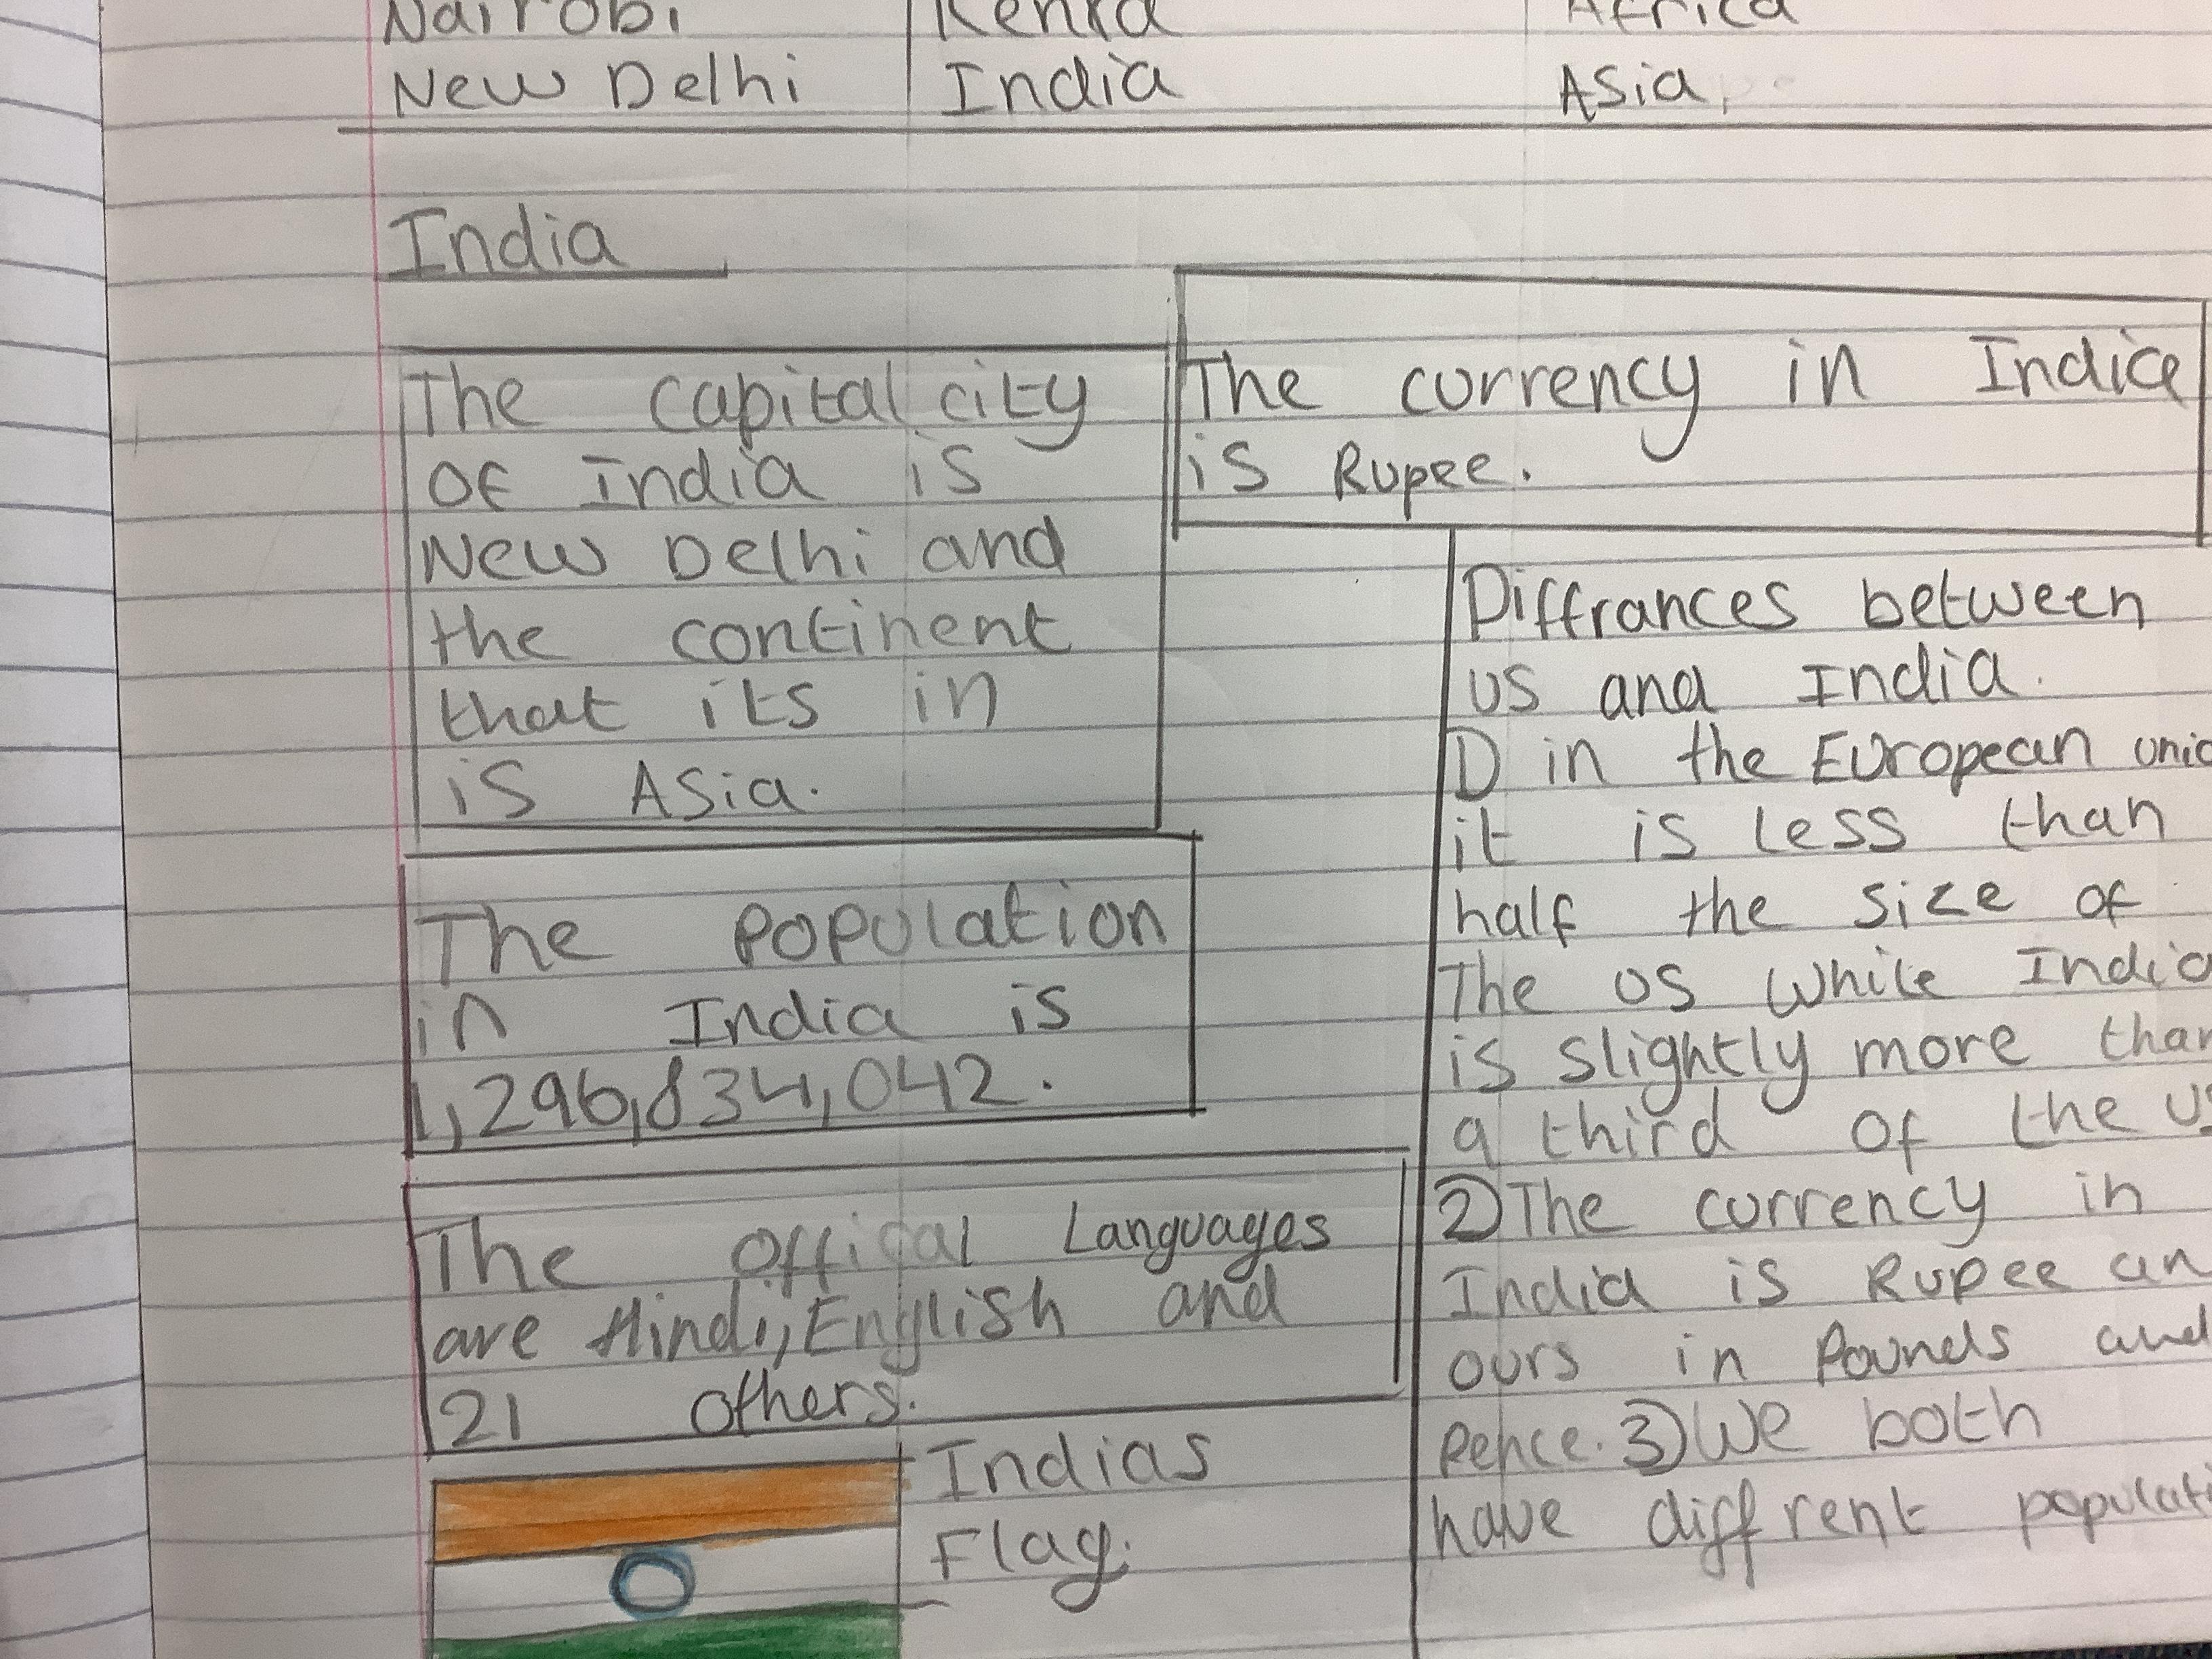 Nairobi Kenya Africa
New Delhi India Asia
India
The capital city
of India is
New Delhi and
the continent
that its in
is Asia.
The currency in India
is Rupee.
The population
in India is
1,296,834,042.
The offical Languages
are Hindi, English and
21 others.
Indias
Flag.
Diffrances between
us and India.
1) in the European unio
it is less than
half the size of
The US while India
is slightly more than
a third of the US
2) The currency in
India is Rupee an
ours in Pounds and
Pence. 3) We both
have diffrent populati